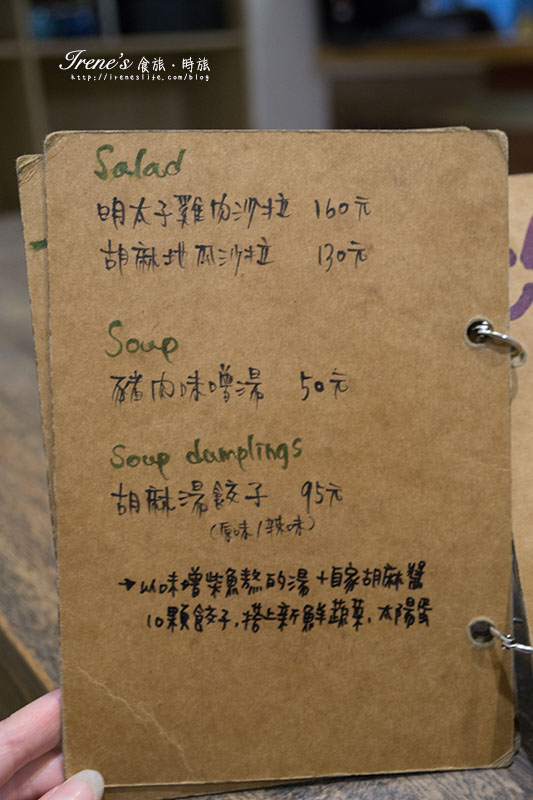 Irene's 食旅・時旅
http://ireneslife.com/blog
Salad
明太子雞肉沙拉 160元
胡麻地瓜沙拉 130元
Soup
豬肉味噌湯 50元
Soup dumplings
胡麻湯餃子 95元
(原味/辣味)
→以味噌柴魚熬的湯+自家胡麻醬
10顆餃子,搭上新鮮蔬菜、太陽蛋